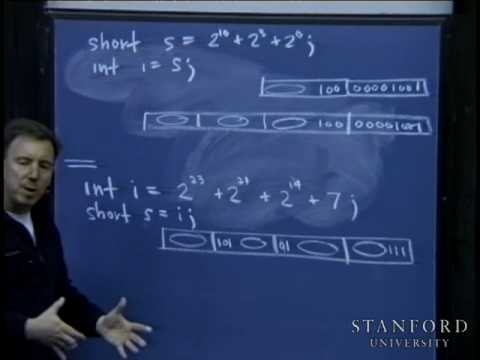 short s = 2¹⁰ + 2³ + 2⁰;
int i = s;
100 00001001
100 00001001
int i = 2²³ + 2²¹ + 2¹⁴ + 7;
short s = i;
101 01 111
STANFORD
UNIVERSITY